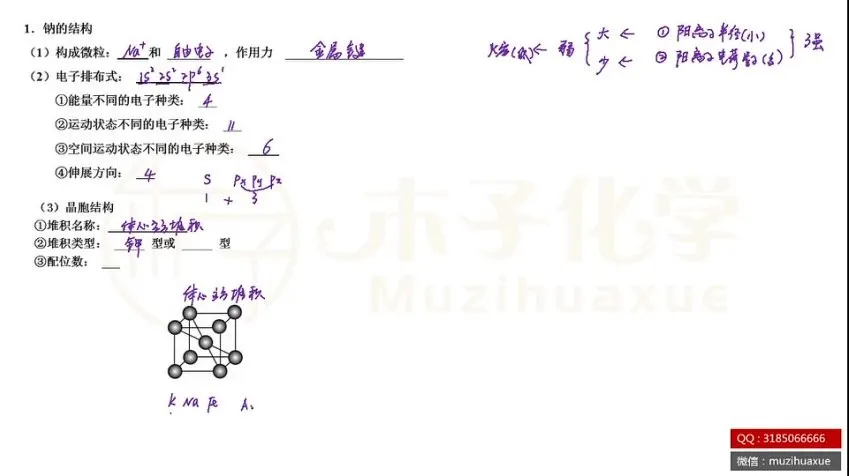 1. 钠的结构
（1）构成微粒： Na⁺ 和 自由电子 ，作用力 金属键
（2）电子排布式： 1S² 2S² 2P⁶ 3S¹
①能量不同的电子种类： 4
②运动状态不同的电子种类： 11
③空间运动状态不同的电子种类： 6
④伸展方向： 4
S Px Py Pz
1 + 3
大 ← ① 阳离子半径(小)
弱 强
少 ← ② 阳离子电荷数(多)
（3）晶胞结构
①堆积名称： 体心立方堆积
②堆积类型： 钾 型或 型
③配位数：
体心立方堆积
K Na Fe
木子化学
Muzihuaxue
QQ : 3185066666
微信 : muzihuaxue